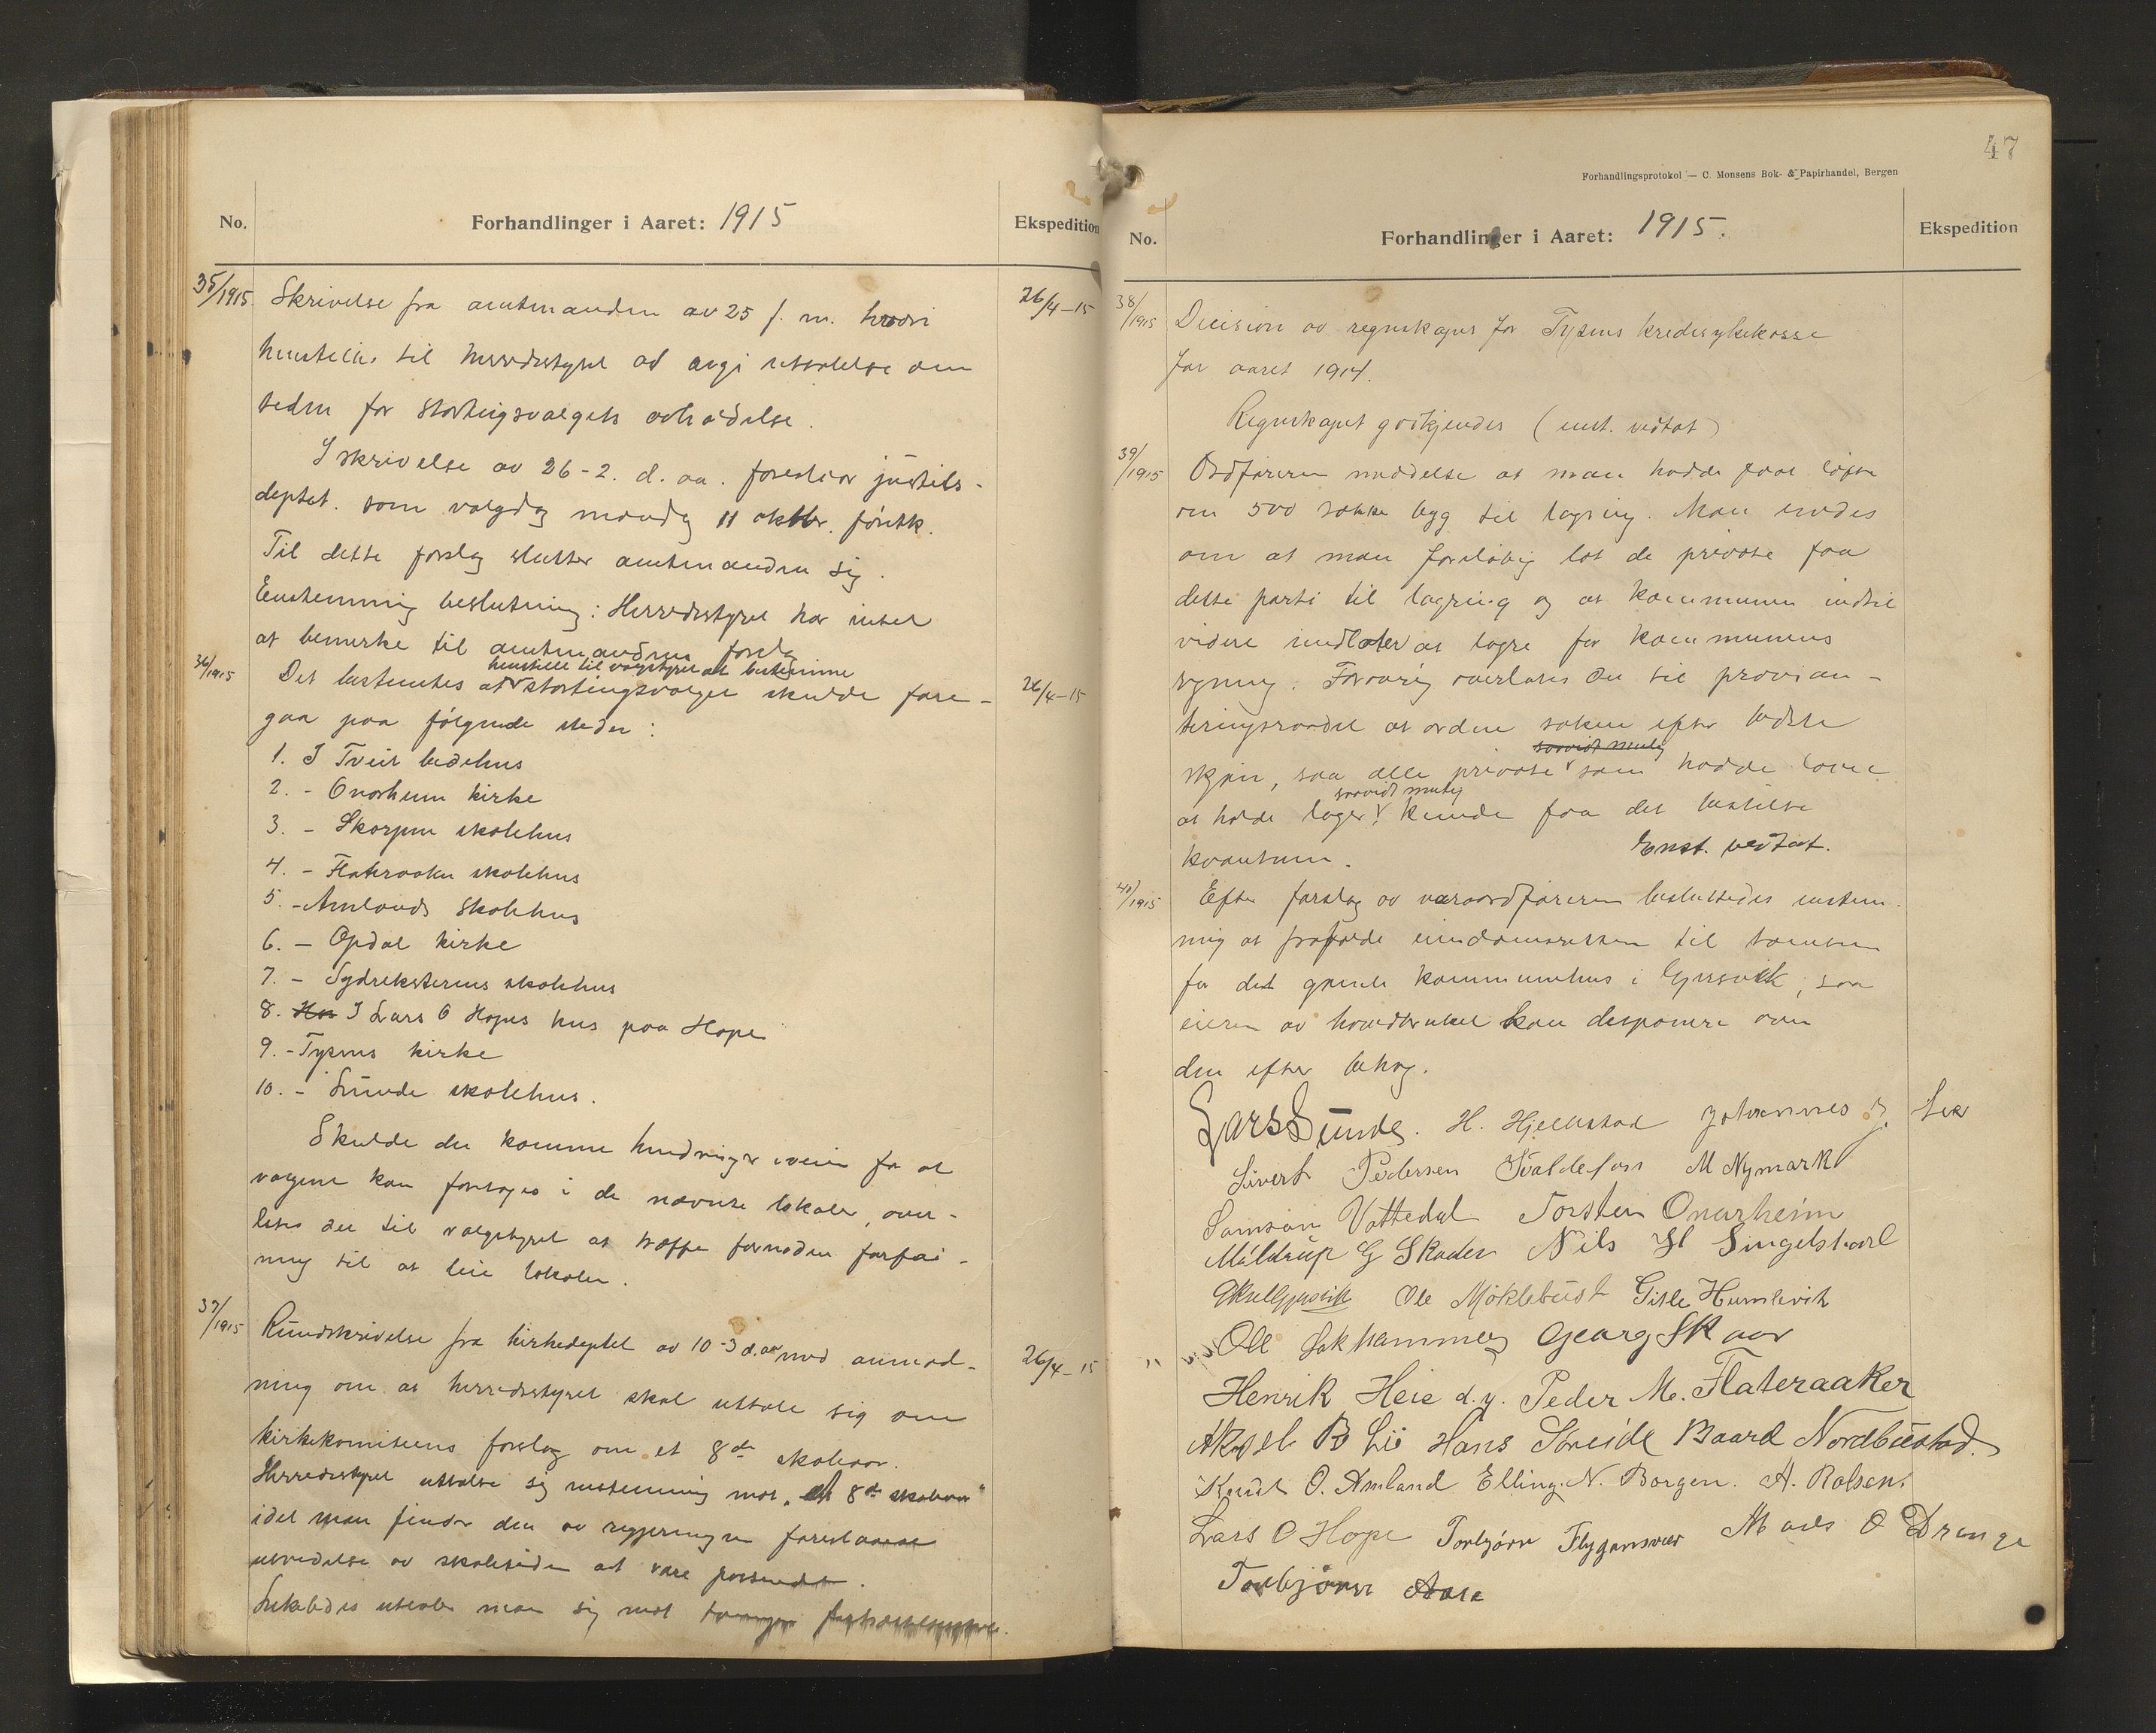 No.
Forhandlinger i Aaret: 1915
Ekspedition
35/1915
Skrivelse fra amtmanden av 25 f. m. hvori
26/4-15
henstilles til herredsstyret at avgi uttalelse om
tiden for stortingsvalgets avholdelse.
I skrivelse av 26-2. d. aa. foreslaar justits-
deptet. som valgdag mandag 11 oktbr. førstk.
Til dette forslag slutter amtmanden sig.
Enstemmig beslutning: Herredsstyret har intet
at bemerke til amtmandens forslag
36/1915
henstille til valgstyret at bestemme
Det bestemtes at stortingsvalget skulde fore-
26/4-15
gaa paa følgende steder:
1. I Tveit bedehus
2. - Onarheim kirke
3. - Skorpen skolehus
4. - Flateraaker skolehus
5. - Amlands skolehus
6. - Opdal kirke
7. - Sydreksterens skolehus
8. I Lars O Hopes hus paa Hope
9. - Tysnes kirke
10. - Lunde skolehus.
Skulde der komme hindringer iveien for at
valgene kan foretages i de nævnte lokaler, over-
lates det til valgstyret at træffe fornøden forføi-
ning til at leie lokaler.
37/1915
Rundskrivelse fra kirkedeptet av 10-3 d. aa med anmod-
26/4-15
ning om at herredsstyret skal uttale sig om
kirkekomiteens forslag om et 8de skoleaar.
Herredsstyret uttalte sig enstemmig mot "et 8de skoleaar"
idet man finder den av regjeringen foreslaaede
utvidelse av skoletiden at være
Likeledes uttaler man sig mot tvungen
47
Forhandlingsprotokol — C. Monsens Bok- & Papirhandel, Bergen
No.
Forhandlinger i Aaret: 1915.
Ekspedition
38/1915
Decision av regnskapet for Tysnes kredssykekasse
for aaret 1914.
Regnskapet godkjendes (enst. vedtat)
39/1915
Ordføreren meddelte at man hadde faat løfte
om 500 sække byg til lagring. Man enedes
om at man foreløbig lot de private faa
dette parti til lagring og at kommunen indtil
videre undlater at lagre for kommunens
regning. Forøvrig overlates det til provian-
teringsraadet at ordne saken efter bedste
saavidt mulig
skjøn, saa alle private som hadde lovet
saavidt mulig
at holde lager kunde faa det bestilte
kvantum.
Enst. vedtat.
40/1915
Efter forslag av varaordføreren besluttedes enstem-
mig at frafalde eiendomsretten til tomten
for det gamle kommunehus i Gjersvik, saa
eieren av hovedbruket kan disponere over
den efter behag.
Lars Lunde. H. Hjellestad Johannes J. Lie
Sivert Pedersen Svaldefoss M Nymark
Samson Vattedal Torsten Onarheim
Måldrup G Skaden Nils H Singelstad
Ole Møklebust Gisle Humlevik
Ole Lokhammer Georg Skaar
Henrik Heie d.y. Peder M. Flateraaker
Aksel B Lie Hans Søreide Baard Nordbustad.
Knut O. Amland Elling N. Borgen. A. Rolsen.
Lars O Hope Torbjørn Flygansvær Mads O Drange
Torbjørn Aase